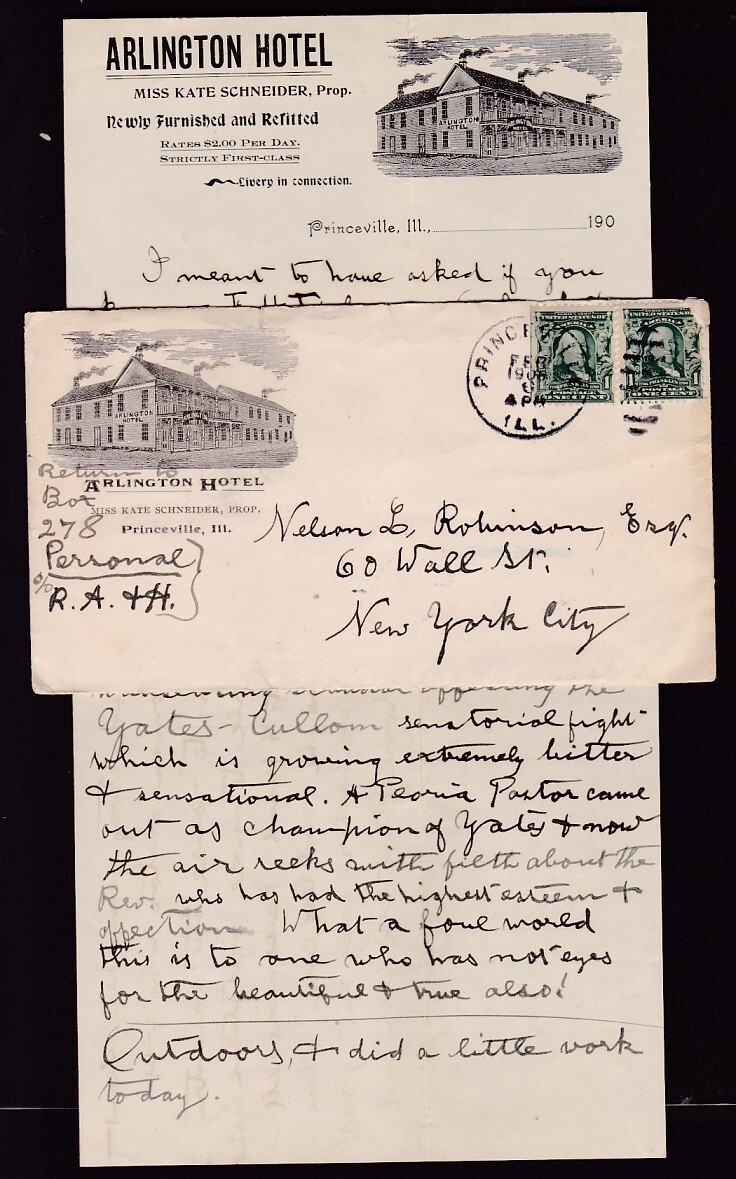 ARLINGTON HOTEL
MISS KATE SCHNEIDER, Prop.
Newly Furnished and Refitted
RATES $2.00 PER DAY.
STRICTLY FIRST-CLASS
Livery in connection.
ARLINGTON HOTEL
Princeville, Ill., 190
I meant to have asked if you
PRINCE
FEB
190
6
4 PM
ILL.
UNITED STATES OF AMERICA
POSTAGE
ONE CENT
UNITED STATES OF AMERICA
FRANKLIN
POSTAGE
ONE CENT
ARLINGTON HOTEL
Return to
ARLINGTON HOTEL
Box
MISS KATE SCHNEIDER, PROP.
278
Princeville, Ill.
Personal
c/o
R. A. & H.
Nelson L. Robinson, Esq.
60 Wall St.
New York City
the
Yates-Cullom senatorial fight-
which is growing extremely bitter
& sensational. A Peoria Pastor came
out as champion of Yates & now
the air reeks with filth about the
Rev. who has had the highest esteem &
affection. What a foul world
this is to one who has not eyes
for the beautiful & true also!
Outdoors, & did a little work
today.